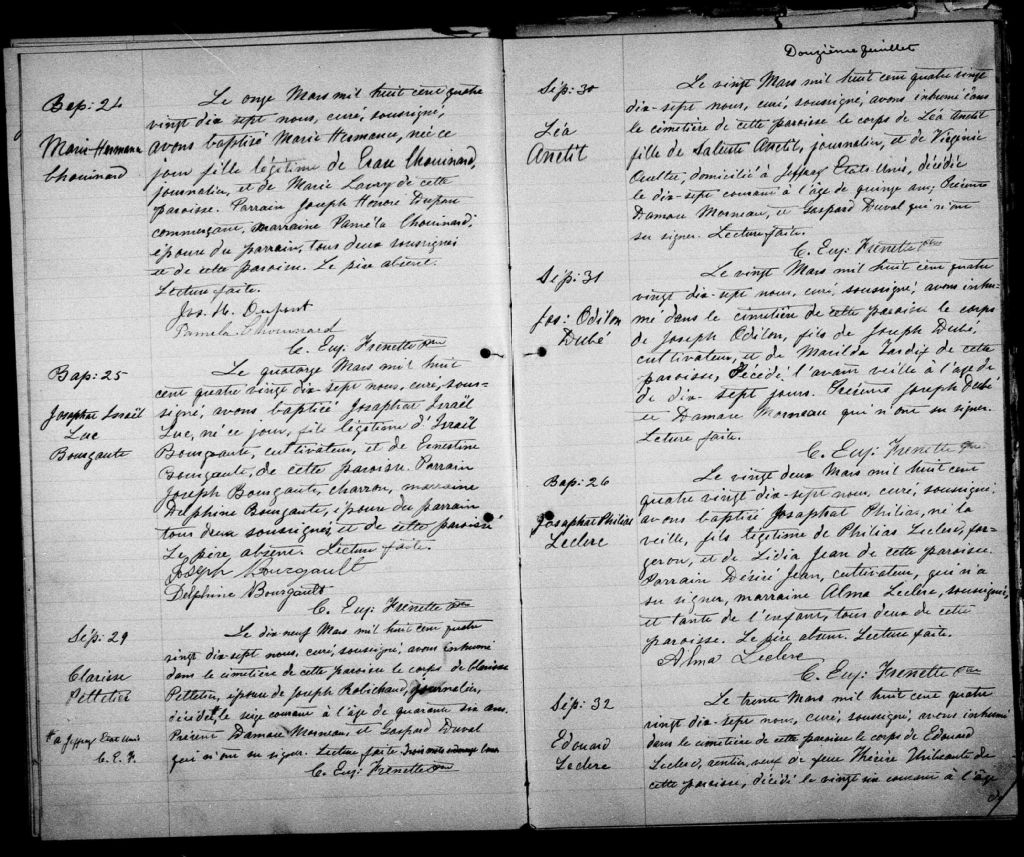 Bap: 24
Marie Hermance
Chouinard
Le onze Mars mil huit cent quatre
vingt dix sept nous, curé, soussigné,
avons baptisé Marie Hermance, née ce
jour fille légitime de Esau Chouinard,
journalier, et de Marie Lavoy de cette
paroisse. Parrain Joseph Honore Dupon
commerçant, marraine Paméla Chouinard;
épouse du parrain, tous deux soussignés
et de cette paroisse. Le père absent.
Lecture faite.
Jos. H. Dupont
Pamela Chouinard
C. Eug: Frenette ptre
Bap: 25
Josaphat Israël
Luc
Bourgault
Le quatorze Mars mil huit
cent quatre vingt dix-sept nous, curé, sous-
signé, avons baptisé Josaphat Israël
Luc, né ce jour, fils légitime d'Israël
Bourgault, cultivateur, et de Ernestine
Bourgault, de cette paroisse. Parrain
Joseph Bourgault, charron, marraine
Delphine Bourgault, épouse du parrain
tous deux soussignés et de cette paroisse
Le père absent. Lecture faite.
Joseph Bourgault
Delphine Bourgault
C. Eug: Frenette ptre
Sép: 29
Clarisse
Pelletier
# a Jeffrey Etats Unis
C. E. F.
Le dix neuf Mars mil huit cent quatre
vingt dix-sept nous, curé, soussigné, avons inhumé
dans le cimetière de cette paroisse le corps de Clarisse
Pelletier, épouse de Joseph Robichaud, journalier,
décédée, le seize courant à l'âge de quarante six ans.
Présent Damase Morneau, et Gaspard Duval
qui n'ont su signer. Lecture faite. Trois mots
C. Eug: Frenette ptre
Douzième feuillet
Sép: 30
Léa
Anctil
Le vingt Mars mil huit cent quatre vingt
dix-sept nous, curé, soussigné, avons inhumé dans
le cimetière de cette paroisse le corps de Léa Anctil
fille de Saluste Anctil, journalier, et de Virginie
Ouellet, domicilié à Jeffrey Etats Unis, décédée
le dix-sept courant à l'âge de quinze ans; Présents
Damase Morneau, et Gaspard Duval qui n'ont
su signer. Lecture faite.
C. Eug: Frenette ptre
Sép: 31
Jos: Odilon
Dubé
Le vingt Mars mil huit cent quatre
vingt dix-sept nous, curé, soussigné, avons inhu-
mé dans le cimetière de cette paroisse le corps
de Joseph Odilon, fils de Joseph Dubé,
cultivateur, et de Marilda Tardif de cette
paroisse, décédé l'avant veille à l'âge de
de dix-sept jours. Présents Joseph Dubé
et Damase Morneau qui n'ont su signer.
Lecture faite.
C. Eug: Frenette ptre
Bap: 26
Josaphat Philias
Leclerc
Le vingt deux Mars mil huit cent
quatre vingt dix-sept nous, curé, soussigné,
avons baptisé Josaphat Philias, né la
veille, fils légitime de Philias Leclerc, for-
geron, et de Lidia Jean de cette paroisse.
Parrain Désiré Jean, cultivateur, qui n'a
su signer, marraine Alma Leclerc, soussignée,
et tante de l'enfant, tous deux de cette
paroisse. Le père absent. Lecture faite.
Alma Leclerc
C. Eug: Frenette ptre
Sép: 32
Edouard
Leclerc
Le trente Mars mil huit cent quatre
vingt dix-sept nous, curé, soussigné, avons inhumé
dans le cimetière de cette paroisse le corps de Edouard
Leclerc, rentier, veuf de feue Thibeault de
cette paroisse, décédé le vingt six courant à l'âge